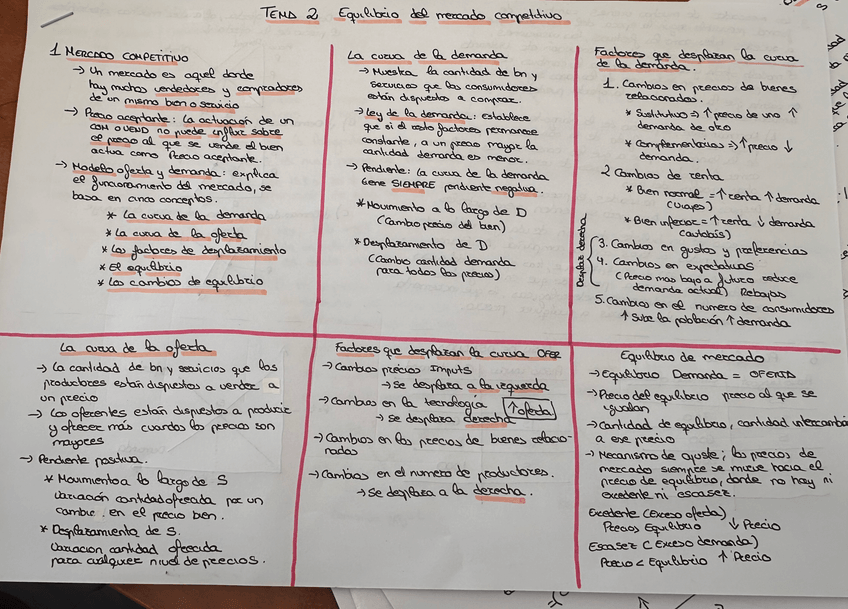 TEMA 2 Equilibrio del mercado competitivo
1 MERCADO COMPETITIVO
→ Un mercado es aquel donde
hay muchos vendedores y compradores
de un mismo bien o servicio
→ Precio aceptante: La actuación de un
COM O VEND no puede influir sobre
el precio al que se vende el bien
actua como Precio aceptante.
→ Modelo oferta y demanda: explica
el funcionamiento del mercado, se
basa en cinco conceptos.
* La curva de la demanda
* La curva de la oferta
* Los factores de desplazamiento
* El equilibrio
* Los cambios de equilibrio
La curva de la demanda
→ Muestra la cantidad de bn y
servicios que los consumidores
están dispuestos a comprar.
→ Ley de la demanda: establece
que si el resto factores permanece
constante, a un precio mayor la
cantidad demanda es menor.
→ Pendiente: La curva de la demanda
tiene SIEMPRE pendiente negativa.
* Movimiento a lo largo de D
(Cambio precio del bien)
* Desplazamiento de D
(Cambio cantidad demanda
para todos los precios)
Factores que desplazan la curva
de la demanda.
1. Cambios en precios de bienes
relacionados.
* Sustitutivo => ↑ precio de uno ↑
demanda de otro
* Complementarios => ↑ precio ↓
demanda.
2 Cambios de renta
* Bien normal = ↑ renta ↑ demanda
(viajes)
* Bien inferior = ↑ renta ↓ demanda
(autobús)
Desplaz derecha
3. Cambios en gustos y preferencias
4. Cambios en expectativas
(Precio mas bajo a futuro reduce
demanda actual) Rebajas
5. Cambios en el numero de consumidores
↑ Sube la población ↑ demanda
La curva de la oferta
→ La cantidad de bn y servicios que los
productores están dispuestos a vender a
un precio
→ Los oferentes están dispuestos a producir
y ofrecer más cuando los precios son
mayores
→ Pendiente positiva.
* Movimiento a lo largo de S
variación cantidad ofrecida por un
cambio en el precio bien.
* Desplazamiento de S.
Variacion cantidad ofrecida
para cualquier nivel de precios.
Factores que desplazan la curva OFER
→ Cambios precios Imputs
→ se desplaza a la izquierda
→ Cambios en la tecnología ↑ oferta
→ se desplaza derecha
→ Cambios en los precios de bienes relacio-
nados
→ Cambios en el numero de productores.
→ Se desplaza a la derecha.
Equilibrio de mercado
→ Equilibrio Demanda = OFERTA
→ Precio del equilibrio precio al que se
igualan
→ Cantidad de equilibrio, cantidad intercambia
a ese precio
→ Mecanismo de ajuste; los precios de
mercado siempre se mueve hacia el
precio de equilibrio, donde no hay ni
excedente ni escasez.
Excedente (Exceso oferta)
Precio> Equilibrio ↓ Precio
Escasez (Exceso demanda)
Precio < Equilibrio ↑ Precio